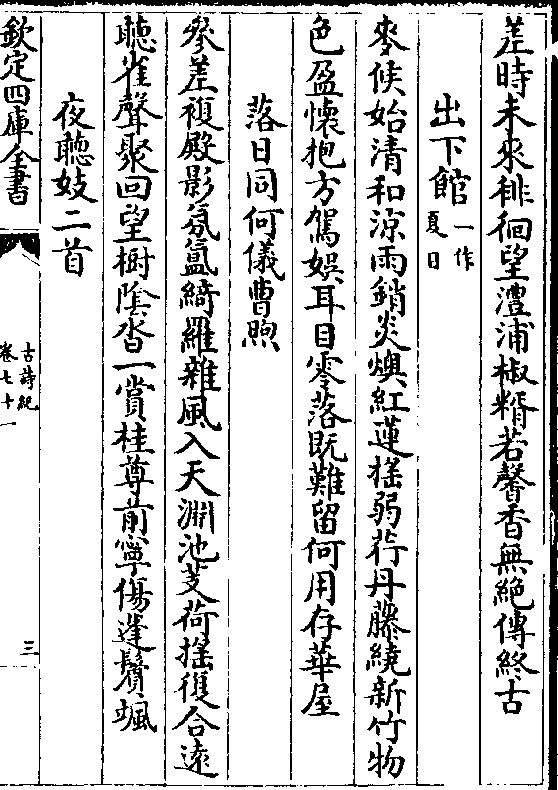 差時未來徘徊望澧浦椒糈若馨香無絶傳終古
出下館一作夏日
麥候始清和涼雨銷炎燠紅蓮揺弱荇丹藤繞新竹物
色盈懷抱方駕娯耳目零落既難留何用存華屋
落日同何儀曹煦
叅差複殿影氛氲綺羅雜風入天淵池芰荷揺復合遠
聽雀聲聚回望樹陰沓一賞桂尊前寧傷蓬鬢颯
夜聽妓二首
欽定四庫全書
古詩紀
卷七十一
三